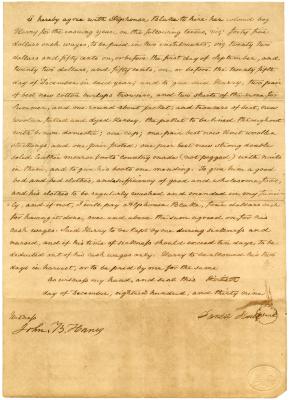 I hereby agree with Alphonso Blake to hire his colored boy
Henry for the ensuing year, on the following terms, viz: forty five
dollars cash wages, to be paid in two instalments, viz twenty two
dollars and fifty cents on, or before the first day of September, and
twenty two dollars, and fifty cents, on, or before the twenty fifth
day of December in said year; and to give said Henry, two pair
of best new cotton trowsers, and two shirts of the same for
summer, and one round about jacket, and trowsers of best, new
woolen fulled and dyed Kersey, the jacket to be lined throughout
with brown domestic; one cap; one pair best new knit woollen
stockings, and one pair socks; one pair best new strong double
soled leather shoes country made (not pegged) with nails
in them, and to give his boots one mending. To give him a good
bed and bed clothes, a sufficiency of good and wholesome food,
and his clothes to be regularly washed and mended in my family
and if not, I will pay Alphonso Blake, dollars
for damages done, over and above the sum agreed on, for his
cash wages. Said Henry to be kept by me during sickness and
nursed, and if his time of sickness should exceed two days, to be
deducted out of his cash wages only. Henry to be allowed his two
days in harvest, or to be paid by me for the same
As witness my hand, and seal this
day of December, eighteen hundred, and thirty nine
Witness
John B. Haney